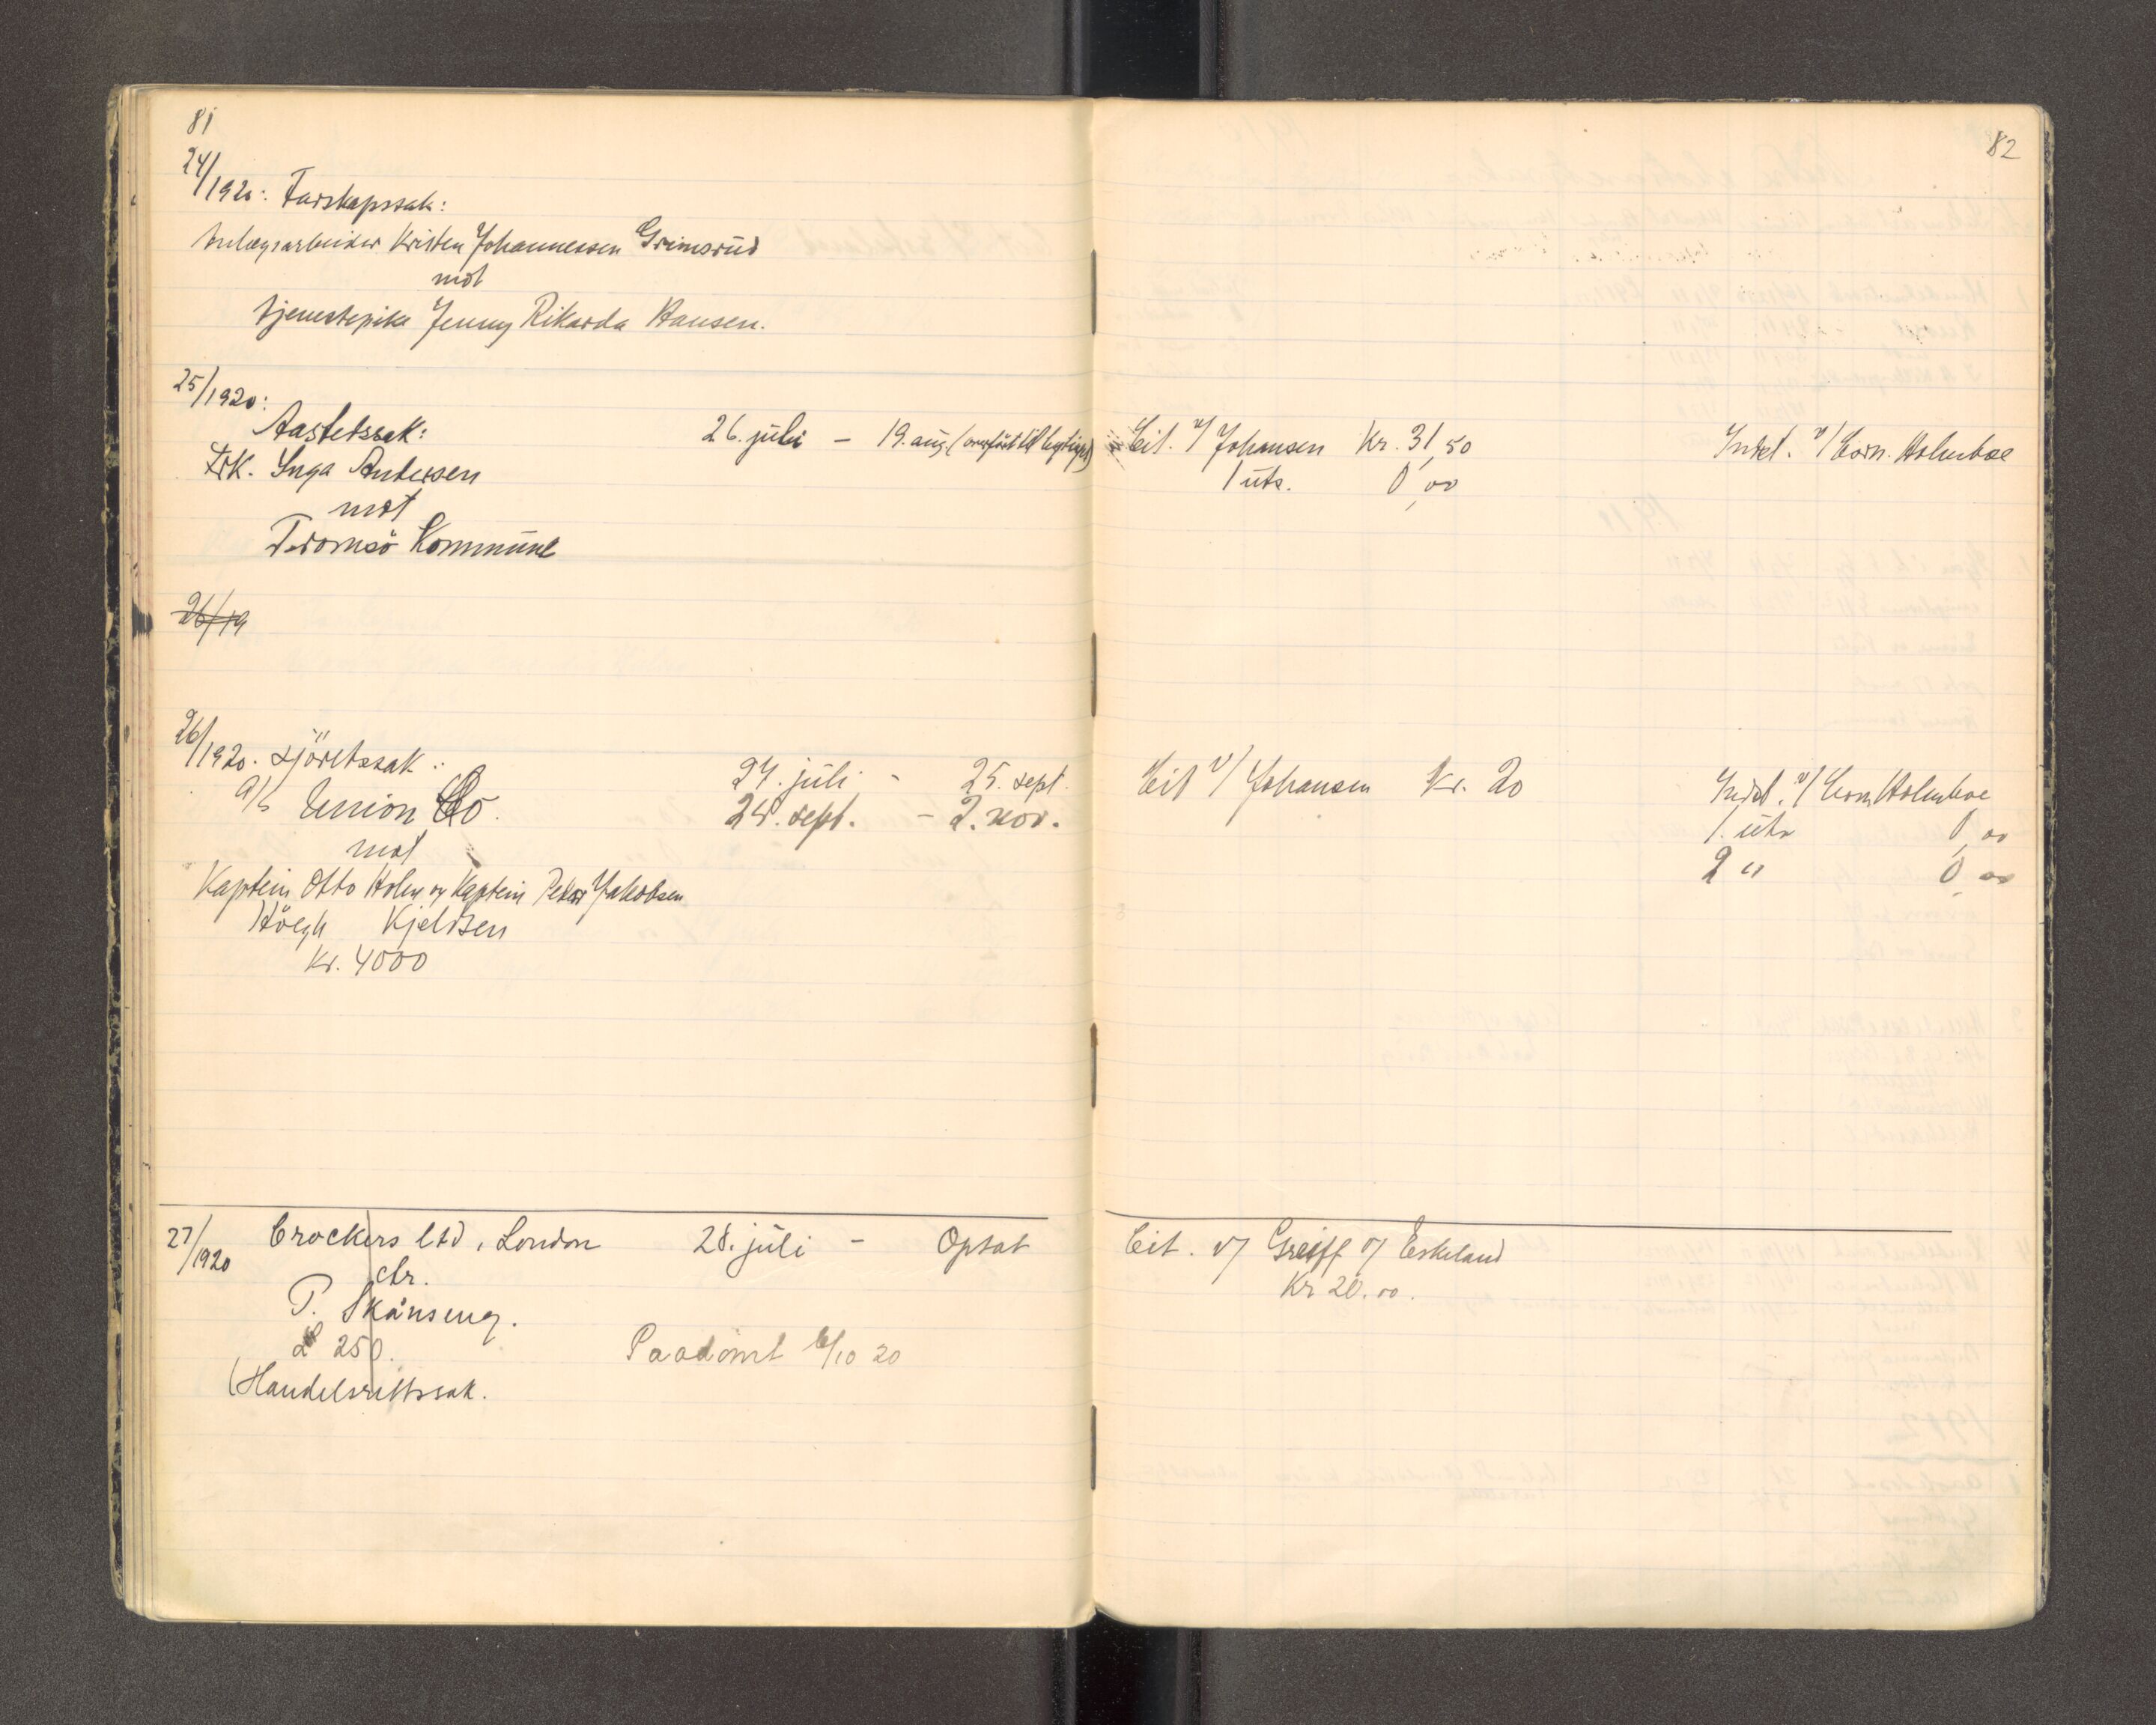 81
24/1920: Farskapssak:
Anlægsarbeider Kristen Johannessen Grimsrud
mot
tjenestepike Jenny Rikarda Hansen.
25/1920:
Aastedssak: 26. juli — 19. aug. (overført til
Frk. Inga Andersen
mot
Tromsö Kommune
26/19
26/1920. Sjöretssak: 27. juli - 25. sept.
A/S Union Co. 24. sept. - 2. nov.
mot
Kaptein Otto Holm og Kaptein Peder Jakobsen
Höegh Kjeldsen
Kr. 4000
27/1920 Crockers Ltd, London 28. juli - Optat
ctr.
P. Skånseng.
£ 250. Paadömt 6/10 20
(Handelsrettssak.
82
Cit. v/ Johansen Kr. 31,50 Indst. v/ Corn. Holmboe
1 uts. 0,00
Cit v/ Johansen Kr. 20 Indst. v/ Corn Holmboe
1. uts 0,00
2 " 0,00
Cit. v/ Greiff v/ Eskeland
Kr 20.00.